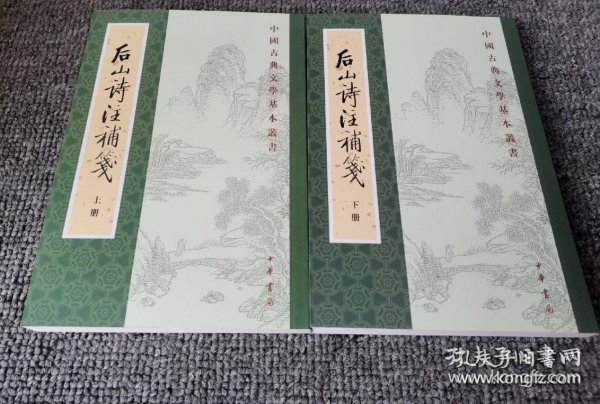 中國古典文學基本叢書
后山诗注補箋
上册
中華書局
中國古典文學基本叢書
后山诗注補箋
下册
中華書局
孔夫子旧書网
www.kongfz.com